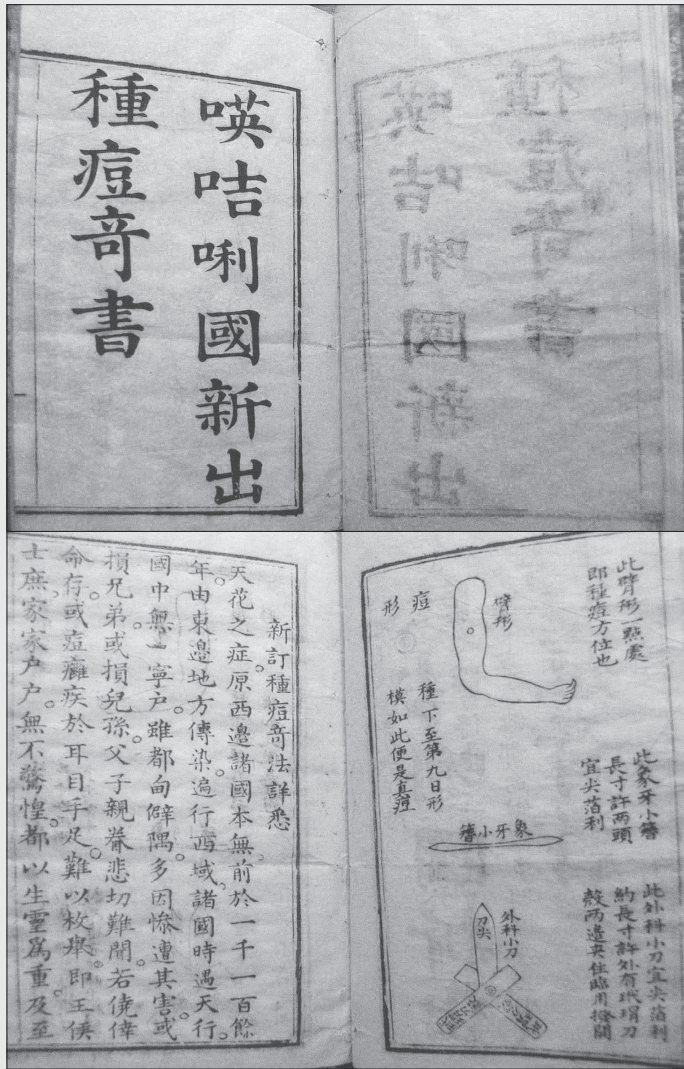 㖫咭唎國新出
種痘奇書
此臂形一點處
即種痘方位也
臂形
痘
形
種下至第九日形
模如此便是真痘
此象牙小簪
長寸許兩頭
宜尖薄利
象牙小簪
此外科小刀宜尖薄利
約長寸許外有玳瑁刀
殼兩邊夾住臨用撥開
外科小刀
刀尖
新訂種痘奇法詳悉
天花之症原西邊諸國本無前於一千一百餘
年由東邊地方傳染遍行西域諸國時遇天行
國中無一寧戶雖都甸僻隅多因慘遭其害或
損兄弟或損兒孫父子親眷悲切難聞若僥倖
命存或痘癰疾於耳目手足難以枚舉即王侯
士庶家家戶戶無不驚惶都以生靈爲重及至